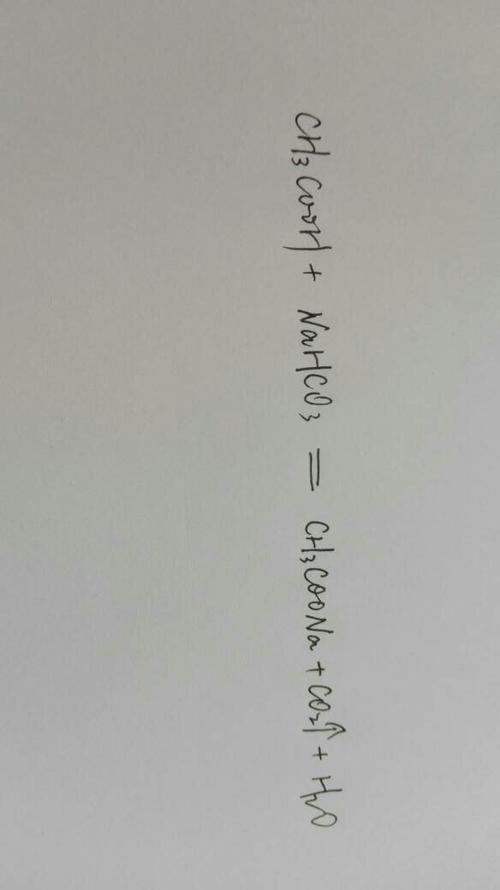 CH₃COOH + NaHCO₃ = CH₃COONa + CO₂↑ + H₂O